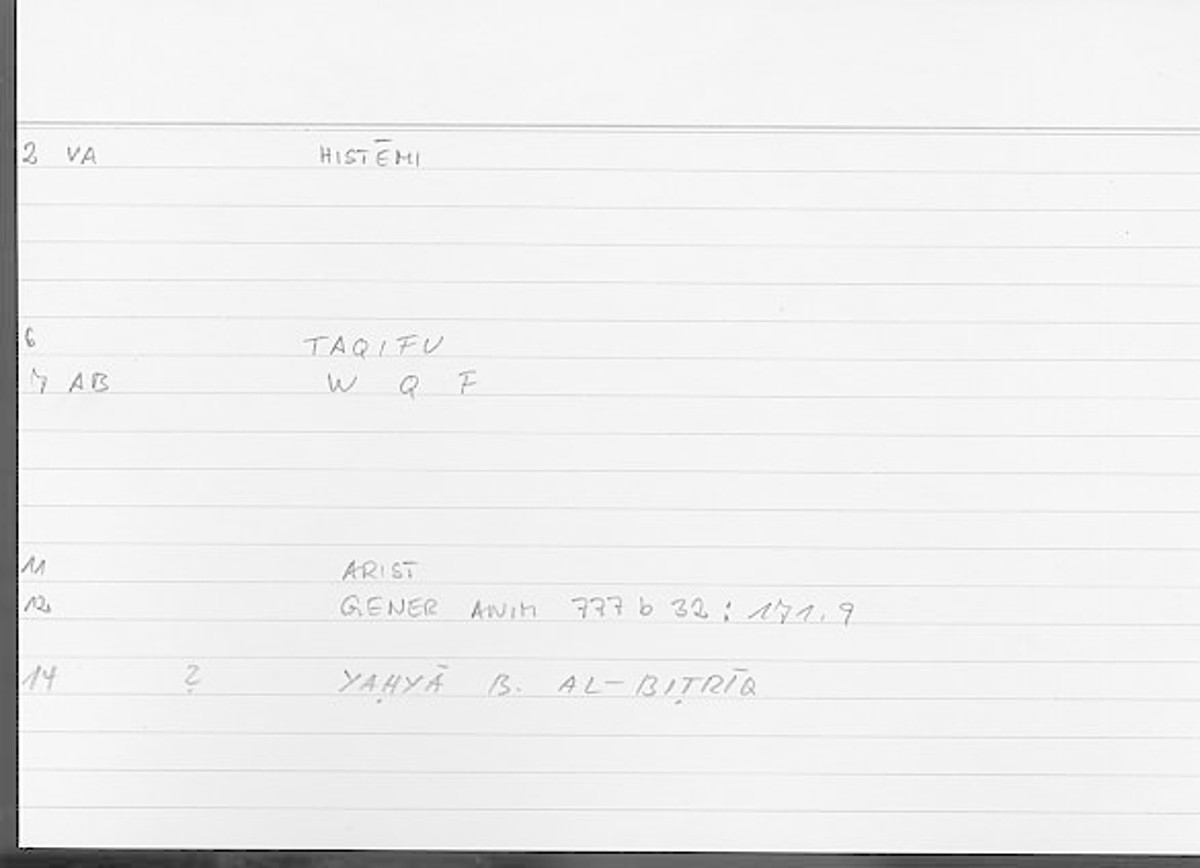 2 VA HISTĒMI
6 TAQIFU
7 AB W Q F
11 ARIST
12 GENER ANIM 777 b 32 : 171.9
14 ? YAḤYĀ B. AL-BIṬRĪQ